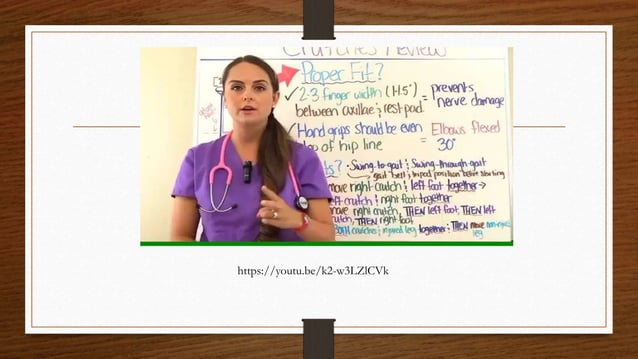 Crutches Review
Proper Fit?
✓ 2-3 finger width (1-1.5") = prevents
between axillae & rest pad nerve damage
✓ Hand grips should be even = Elbows flexed
of hip line 30°
Swing-to-gait & Swing-through-gait
gait belt & tripod position before starting
move right crutch & left foot together →
left crutch & right foot together
move right crutch, THEN left foot, THEN left
crutch, THEN right foot
crutches & injured leg together, THEN move non-injured
leg
https://youtu.be/k2-w3LZlCVk